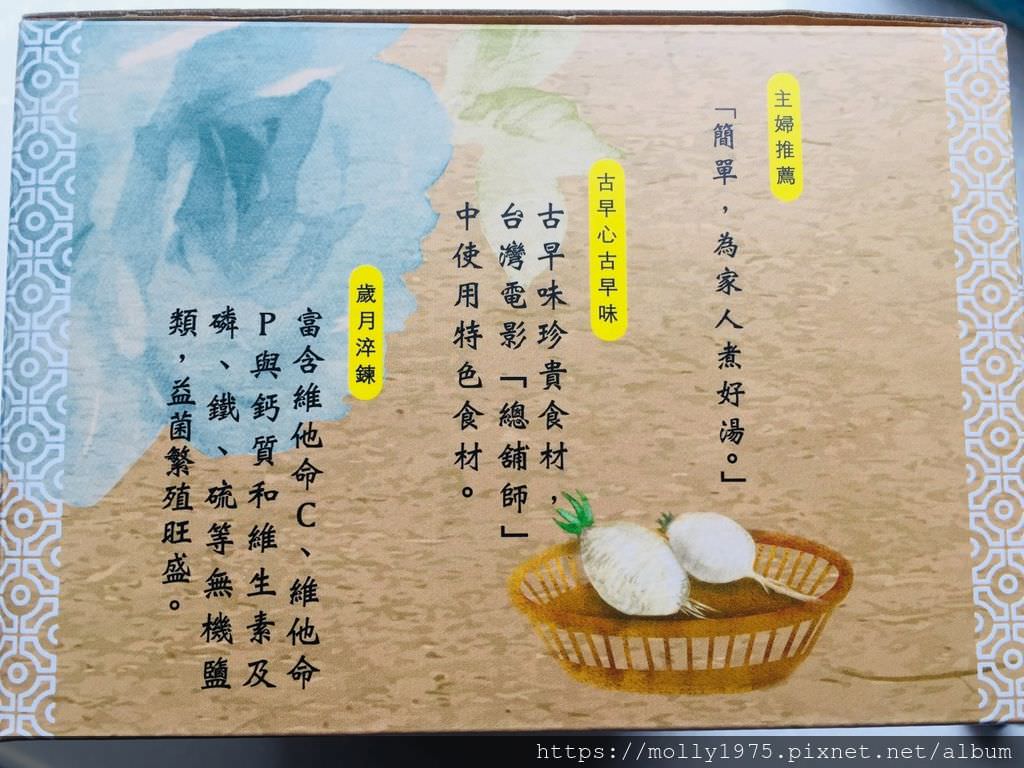 主婦推薦
「簡單，為家人煮好湯。」
古早心古早味
古早味珍貴食材，
台灣電影「總舖師」
中使用特色食材。
歲月淬鍊
富含維他命C、維他命
P與鈣質和維生素及
磷、鐵、硫等無機鹽
類，益菌繁殖旺盛。
https://molly1975.pixnet.net/album